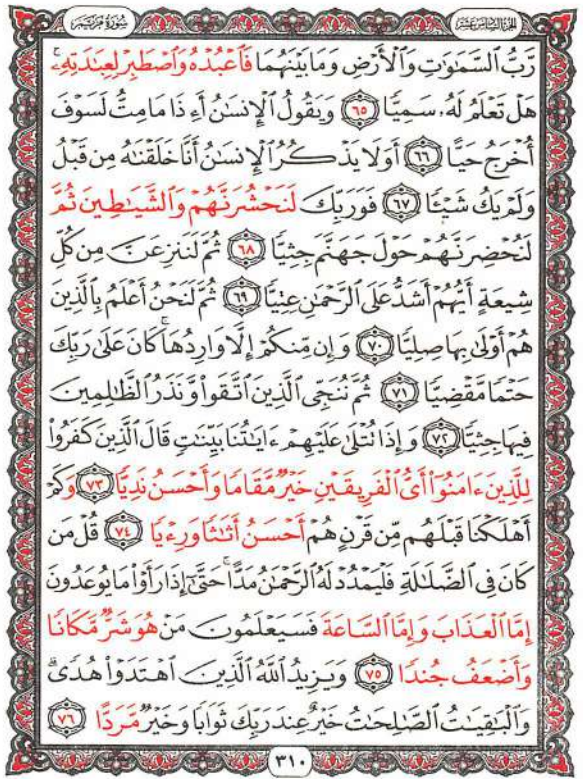 الجزء السادس عشر
سورة مريم
رَّبُّ ٱلسَّمَٰوَٰتِ وَٱلْأَرْضِ وَمَا بَيْنَهُمَا فَٱعْبُدْهُ وَٱصْطَبِرْ لِعِبَٰدَتِهِۦۚ
هَلْ تَعْلَمُ لَهُۥ سَمِيًّا ٦٥ وَيَقُولُ ٱلْإِنسَٰنُ أَءِذَا مَا مِتُّ لَسَوْفَ
أُخْرَجُ حَيًّا ٦٦ أَوَلَا يَذْكُرُ ٱلْإِنسَٰنُ أَنَّا خَلَقْنَٰهُ مِن قَبْلُ
وَلَمْ يَكُ شَيْـًٔا ٦٧ فَوَرَبِّكَ لَنَحْشُرَنَّهُمْ وَٱلشَّيَٰطِينَ ثُمَّ
لَنُحْضِرَنَّهُمْ حَوْلَ جَهَنَّمَ جِثِيًّا ٦٨ ثُمَّ لَنَنزِعَنَّ مِن كُلِّ
شِيعَةٍ أَيُّهُمْ أَشَدُّ عَلَى ٱلرَّحْمَٰنِ عِتِيًّا ٦٩ ثُمَّ لَنَحْنُ أَعْلَمُ بِٱلَّذِينَ
هُمْ أَوْلَىٰ بِهَا صِلِيًّا ٧٠ وَإِن مِّنكُمْ إِلَّا وَارِدُهَاۚ كَانَ عَلَىٰ رَبِّكَ
حَتْمًا مَّقْضِيًّا ٧١ ثُمَّ نُنَجِّى ٱلَّذِينَ ٱتَّقَوا۟ وَّنَذَرُ ٱلظَّٰلِمِينَ
فِيهَا جِثِيًّا ٧٢ وَإِذَا تُتْلَىٰ عَلَيْهِمْ ءَايَٰتُنَا بَيِّنَٰتٍ قَالَ ٱلَّذِينَ كَفَرُوا۟
لِلَّذِينَ ءَامَنُوٓا۟ أَىُّ ٱلْفَرِيقَيْنِ خَيْرٌ مَّقَامًا وَأَحْسَنُ نَدِيًّا ٧٣ وَكَمْ
أَهْلَكْنَا قَبْلَهُم مِّن قَرْنٍ هُمْ أَحْسَنُ أَثَٰثًا وَرِءْيًا ٧٤ قُلْ مَن
كَانَ فِى ٱلضَّلَٰلَةِ فَلْيَمْدُدْ لَهُ ٱلرَّحْمَٰنُ مَدًّاۚ حَتَّىٰٓ إِذَا رَأَوْا۟ مَا يُوعَدُونَ
إِمَّا ٱلْعَذَابَ وَإِمَّا ٱلسَّاعَةَ فَسَيَعْلَمُونَ مَنْ هُوَ شَرٌّ مَّكَانًا
وَأَضْعَفُ جُندًا ٧٥ وَيَزِيدُ ٱللَّهُ ٱلَّذِينَ ٱهْتَدَوْا۟ هُدًىۗ
وَٱلْبَٰقِيَٰتُ ٱلصَّٰلِحَٰتُ خَيْرٌ عِندَ رَبِّكَ ثَوَابًا وَخَيْرٌ مَّرَدًّا ٧٦
٣١٠